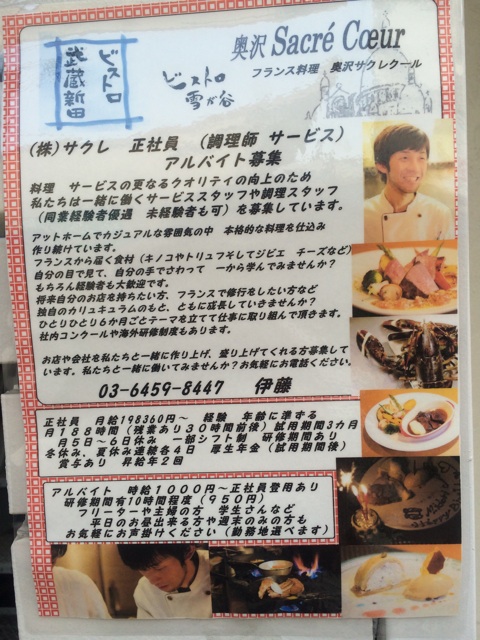 ビストロ
武蔵新田
ビストロ
雪が谷
奥沢 Sacré Cœur
フランス料理 奥沢サクレクール
(株)サクレ 正社員 (調理師 サービス)
アルバイト募集
料理 サービスの更なるクオリティの向上のため
私たちは一緒に働くサービススタッフや調理スタッフ
(同業経験者優遇 未経験者も可)を募集しています。
アットホームでカジュアルな雰囲気の中 本格的な料理を仕込み
作り続けています。
フランスから届く食材(キノコやトリュフそしてジビエ チーズなど)
自分の目で見て、自分の手でさわって 一から学んでみませんか?
もちろん経験者も大歓迎です。
将来自分のお店を持ちたい方、フランスで修行をしたい方など
独自のカリュキュラムのもと、ともに成長していきませんか?
ひとりひとり6か月ごとテーマを立てて仕事に取り組んで頂きます。
社内コンクールや海外研修制度もあります。
お店や会社を私たちと一緒に作り上げ、盛り上げてくれる方募集して
います。私たちと一緒に働いてみませんか?お気軽にお電話ください。
03-6459-8447 伊藤
正社員 月給198360円~ 経験 年齢に準ずる
月188時間(残業あり30時間前後)試用期間3カ月
月5日~6日休み 一部シフト制 研修期間あり
冬休み、夏休み連続各4日 厚生年金(試用期間後)
賞与あり 昇給年2回
アルバイト 時給1000円~正社員登用あり
研修期間有10時間程度(950円)
フリーターや主婦の方 学生さんなど
平日のお昼出来る方や週末のみの方も
お気軽にお声掛けください(勤務地選べます)